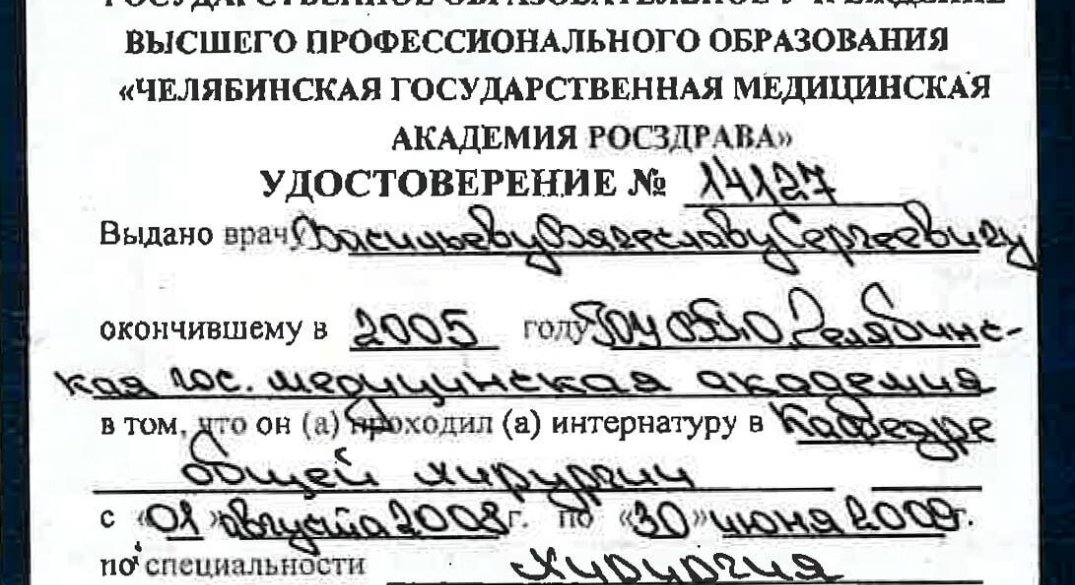 ГОСУДАРСТВЕННОЕ ОБРАЗОВАТЕЛЬНОЕ УЧРЕЖДЕНИЕ
ВЫСШЕГО ПРОФЕССИОНАЛЬНОГО ОБРАЗОВАНИЯ
«ЧЕЛЯБИНСКАЯ ГОСУДАРСТВЕННАЯ МЕДИЦИНСКАЯ
АКАДЕМИЯ РОСЗДРАВА»
УДОСТОВЕРЕНИЕ № 14127
Выдано врачу Васильеву Вячеславу Сергеевичу
окончившему в 2005 году ГОУ ВПО Челябинс-
кая гос. медицинская академия
в том, что он (а) проходил (а) интернатуру в Кафедре
общей хирургии
с «01» августа 2008 г. по «30» июня 2009 г.
по специальности Хирургия